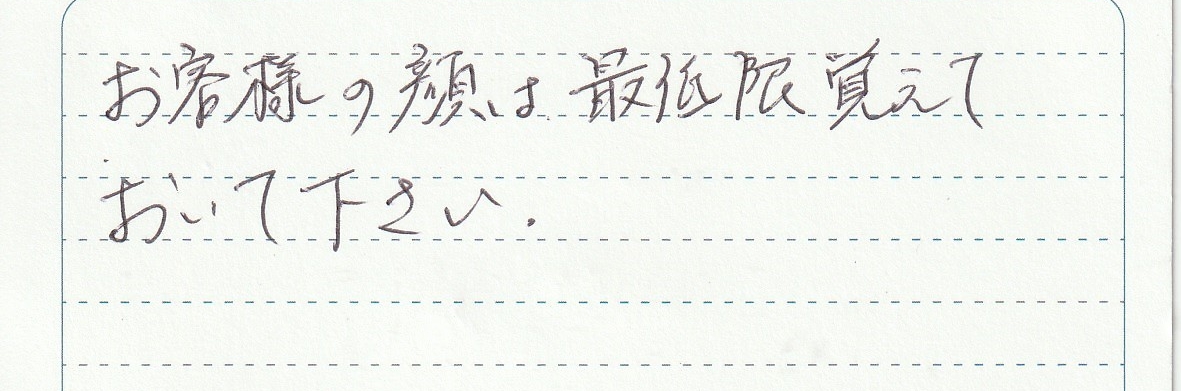 お客様の顔は最低限覚えて
おいて下さい.